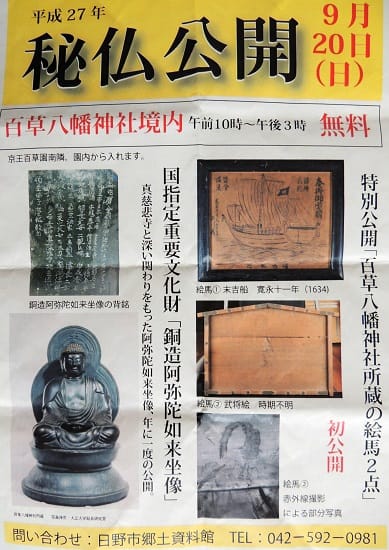 平成27年
秘仏公開
9月
20日
(日)
百草八幡神社境内 午前10時～午後3時 無料
京王百草園南隣。園内から入れます。
特別公開「百草八幡神社所蔵の絵馬2点」
初公開
絵馬① 末吉船 寛永十一年(1634)
絵馬② 武将絵 時期不明
絵馬②
赤外線撮影
による部分写真
国指定重要文化財「銅造阿弥陀如来坐像」
真慈悲寺と深い関わりをもった阿弥陀如来坐像、年に一度の公開。
銅造阿弥陀如来坐像の背銘
問い合わせ：日野市郷土資料館 TEL：042-592-0981